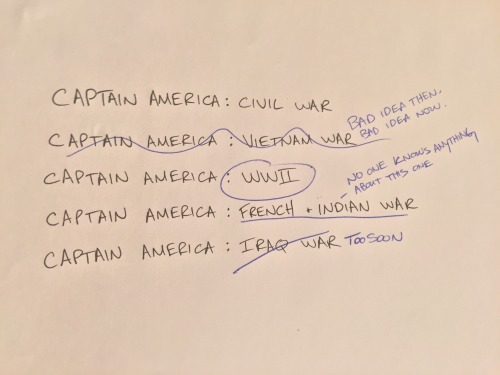 CAPTAIN AMERICA: CIVIL WAR
CAPTAIN AMERICA: VIETNAM WAR
BAD IDEA THEN.
BAD IDEA NOW.
CAPTAIN AMERICA: WWII
CAPTAIN AMERICA: FRENCH + INDIAN WAR
- NO ONE KNOWS ANYTHING
ABOUT THIS ONE
CAPTAIN AMERICA: IRAQ WAR TOO SOON